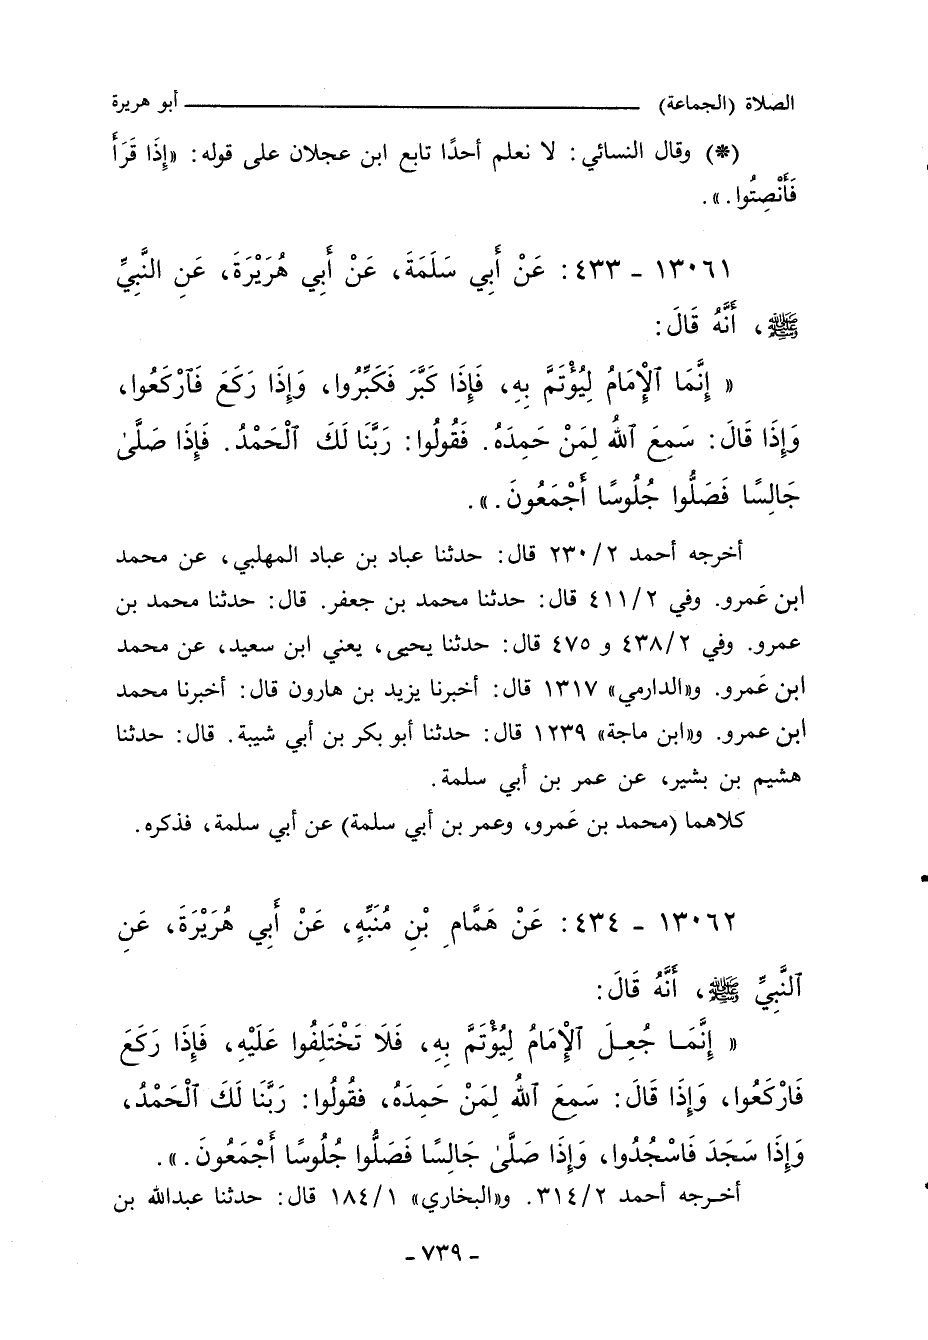 الصلاة (الجماعة) ـــــــــ أبو هريرة
(*) وقال النسائي: لا نعلم أحدًا تابع ابن عجلان على قوله: «إِذَا قَرَأَ
فَأَنْصِتُوا.».
١٣٠٦١ - ٤٣٣: عَنْ أَبِي سَلَمَةَ، عَنْ أَبِي هُرَيْرَةَ، عَنِ النَّبِيِّ
ﷺ، أَنَّهُ قَالَ:
« إِنَّمَا ٱلْإِمَامُ لِيُؤْتَمَّ بِهِ، فَإِذَا كَبَّرَ فَكَبِّرُوا، وَإِذَا رَكَعَ فَٱرْكَعُوا،
وَإِذَا قَالَ: سَمِعَ ٱللهُ لِمَنْ حَمِدَهُ. فَقُولُوا: رَبَّنَا لَكَ ٱلْحَمْدُ. فَإِذَا صَلَّىٰ
جَالِسًا فَصَلُّوا جُلُوسًا أَجْمَعُونَ.».
أخرجه أحمد ٢/ ٢٣٠ قال: حدثنا عباد بن عباد المهلبي، عن محمد
ابن عَمرو. وفي ٢/ ٤١١ قال: حدثنا محمد بن جعفر. قال: حدثنا محمد بن
عمرو. وفي ٢/ ٤٣٨ و ٤٧٥ قال: حدثنا يحيى، يعني ابن سعيد، عن محمد
ابن عَمرو. و«الدارمي» ١٣١٧ قال: أخبرنا يزيد بن هارون قال: أخبرنا محمد
ابن عمرو. و«ابن ماجة» ١٢٣٩ قال: حدثنا أبو بكر بن أبي شيبة. قال: حدثنا
هشيم بن بشير، عن عمر بن أبي سلمة.
كلاهما (محمد بن عَمرو، وعمر بن أبي سلمة) عن أبي سلمة، فذكره.
١٣٠٦٢ - ٤٣٤: عَنْ هَمَّامِ بْنِ مُنَبِّهٍ، عَنْ أَبِي هُرَيْرَةَ، عَنِ
ٱلنَّبِيِّ ﷺ، أَنَّهُ قَالَ:
« إِنَّمَا جُعِلَ ٱلْإِمَامُ لِيُؤْتَمَّ بِهِ، فَلَا تَخْتَلِفُوا عَلَيْهِ، فَإِذَا رَكَعَ
فَارْكَعُوا، وَإِذَا قَالَ: سَمِعَ ٱللهُ لِمَنْ حَمِدَهُ، فقُولُوا: رَبَّنَا لَكَ ٱلْحَمْدُ،
وَإِذَا سَجَدَ فَاسْجُدُوا، وَإِذَا صَلَّىٰ جَالِسًا فَصَلُّوا جُلُوسًا أَجْمَعُونَ.».
أخرجه أحمد ٢/ ٣١٤. و«البخاري» ١/ ١٨٤ قال: حدثنا عبدالله بن
- ٧٣٩ -